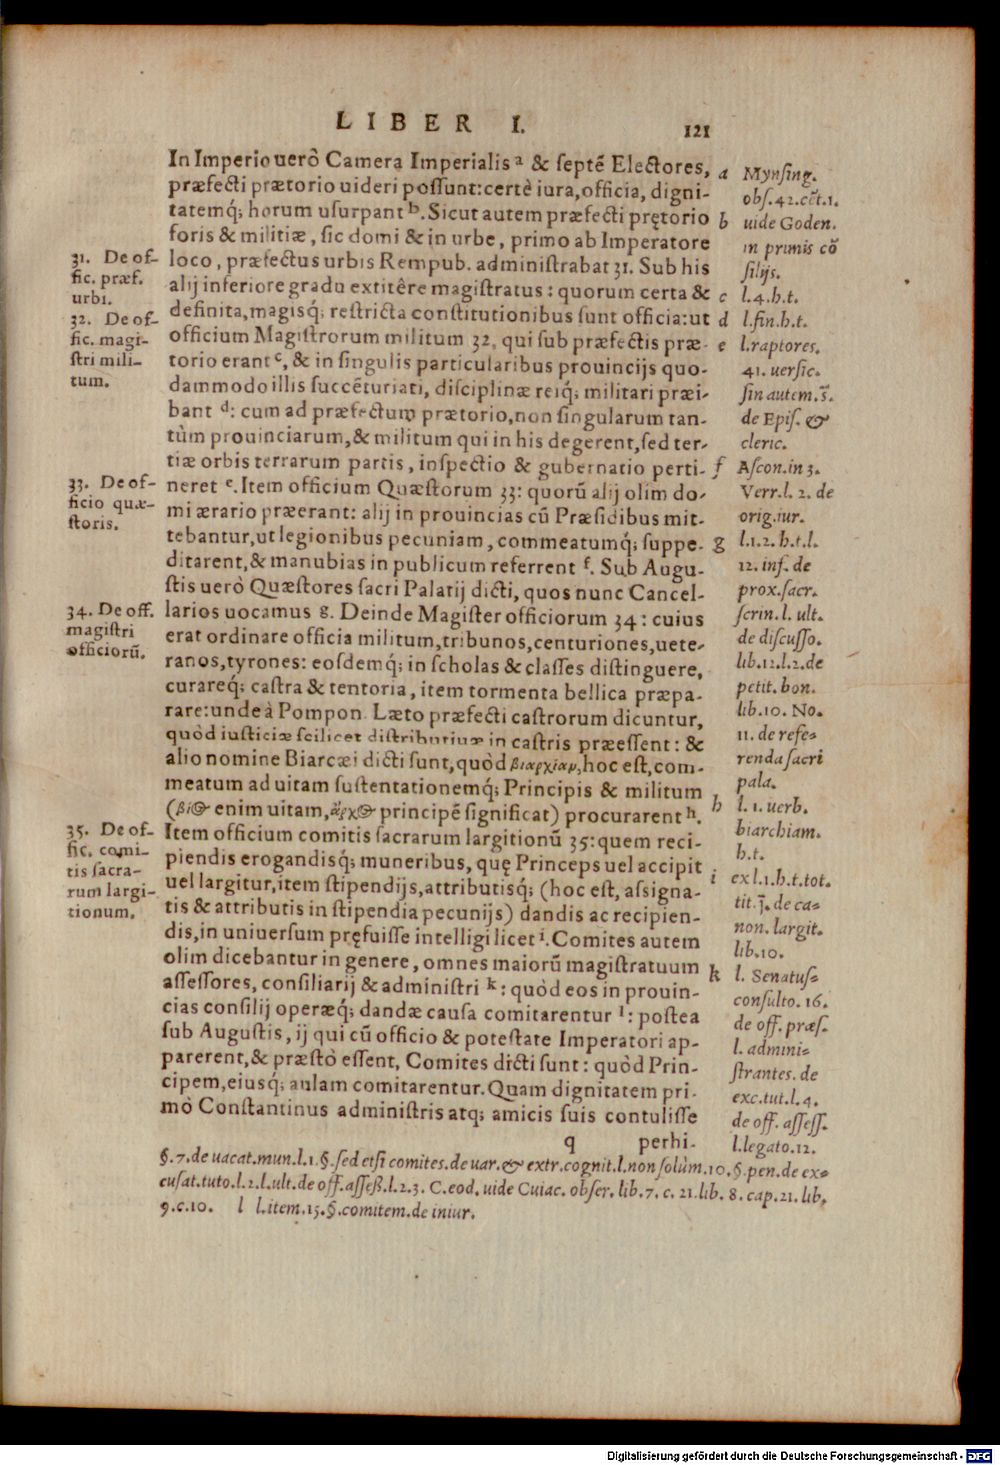 LIBER I. 121
In Imperio uerò Camera Imperialis ᵃ & septẽ Electores,
præfecti prætorio uideri possunt: certè iura, officia, digni-
tatemq́; horum usurpant ᵇ. Sicut autem præfecti prętorio
foris & militiæ, sic domi & in urbe, primo ab Imperatore
loco, præfectus urbis Rempub. administrabat 31. Sub his
alij inferiore gradu extitêre magistratus: quorum certa &
definita, magisq́; restricta constitutionibus sunt officia: ut
officium Magistrorum militum 32, qui sub præfectis præ-
torio erant ᶜ, & in singulis particularibus prouincijs quo-
dammodo illis succẽturiati, disciplinæ reiq́; militari præi-
bant ᵈ: cum ad præfectum prætorio, non singularum tan-
tùm prouinciarum, & militum qui in his degerent, sed ter-
tiæ orbis terrarum partis, inspectio & gubernatio perti-
neret ᵉ. Item officium Quæstorum 33: quorũ alij olim do-
mi ærario præerant: alij in prouincias cũ Præsidibus mit-
tebantur, ut legionibus pecuniam, commeatumq́; suppe-
ditarent, & manubias in publicum referrent ᶠ. Sub Augu-
stis uerò Quæstores sacri Palatij dicti, quos nunc Cancel-
larios uocamus g. Deinde Magister officiorum 34: cuius
erat ordinare officia militum, tribunos, centuriones, uete-
ranos, tyrones: eosdemq́; in scholas & classes distinguere,
curareq́; castra & tentoria, item tormenta bellica præpa-
rare: unde à Pompon. Læto præfecti castrorum dicuntur,
quòd iusticiæ scilicet distributiuæ in castris præessent: &
alio nomine Biarcæi dicti sunt, quòd βιαρχίαμ, hoc est, com-
meatum ad uitam sustentationemq́; Principis & militum
(βίος enim uitam, ἄρχος principẽ significat) procurarent ʰ.
Item officium comitis sacrarum largitionũ 35: quem reci-
piendis erogandisq́; muneribus, quę Princeps uel accipit
uel largitur, item stipendijs, attributisq́; (hoc est, assigna-
tis & attributis in stipendia pecunijs) dandis ac recipien-
dis, in uniuersum pręfuisse intelligi licet ⁱ. Comites autem
olim dicebantur in genere, omnes maiorũ magistratuum
assessores, consiliarij & administri ᵏ: quòd eos in prouin-
cias consilij operæq́; dandæ causa comitarentur ˡ: postea
sub Augustis, ij qui cũ officio & potestate Imperatori ap-
parerent, & præstò essent, Comites dicti sunt: quòd Prin-
cipem, eiusq́; aulam comitarentur. Quam dignitatem pri-
mò Constantinus administris atq; amicis suis contulisse
q perhi-
31. De of-
fic. præf.
urbi.
32. De of-
fic. magi-
stri mili-
tum.
33. De of-
ficio quæ-
storis.
34. De off.
magistri
officiorũ.
35. De of-
fic. comi-
tis sacra-
rum largi-
tionum.
a Mynsing.
obs. 42. cẽt. 1.
b uide Goden.
in primis cõ
silijs.
c l. 4. h. t.
d l. fin. h. t.
e l. raptores.
41. uersic.
sin autem. §.
de Epis. &
cleric.
f Ascon. in 3.
Verr. l. 2. de
orig. iur.
g l. 1. 2. h. t. l.
12. inf. de
prox. sacr.
scrin. l. ult.
de discusso.
lib. 12. l. 2. de
petit. bon.
lib. 10. No.
11. de refe-
renda sacri
pala.
h l. 1. uerb.
biarchiam.
h. t.
i ex l. 1. h. t. tot.
tit. j. de ca-
non. largit.
lib. 10.
k l. Senatus-
consulto. 16.
de off. præs.
l. admini-
strantes. de
exc. tut. l. 4.
de off. assess.
l. legato. 12.
§. 7. de uacat. mun. l. 1. §. sed etsi comites. de uar. & extr. cognit. l. non solùm. 10. §. pen. de ex-
cusat. tuto. l. 2. l. ult. de off. asseß. l. 2. 3. C. eod. uide Cuiac. obser. lib. 7. c. 21. lib. 8. cap. 21. lib.
9. c. 10. l l. item. 15. §. comitem. de iniur.
Digitalisierung gefördert durch die Deutsche Forschungsgemeinschaft - DFG